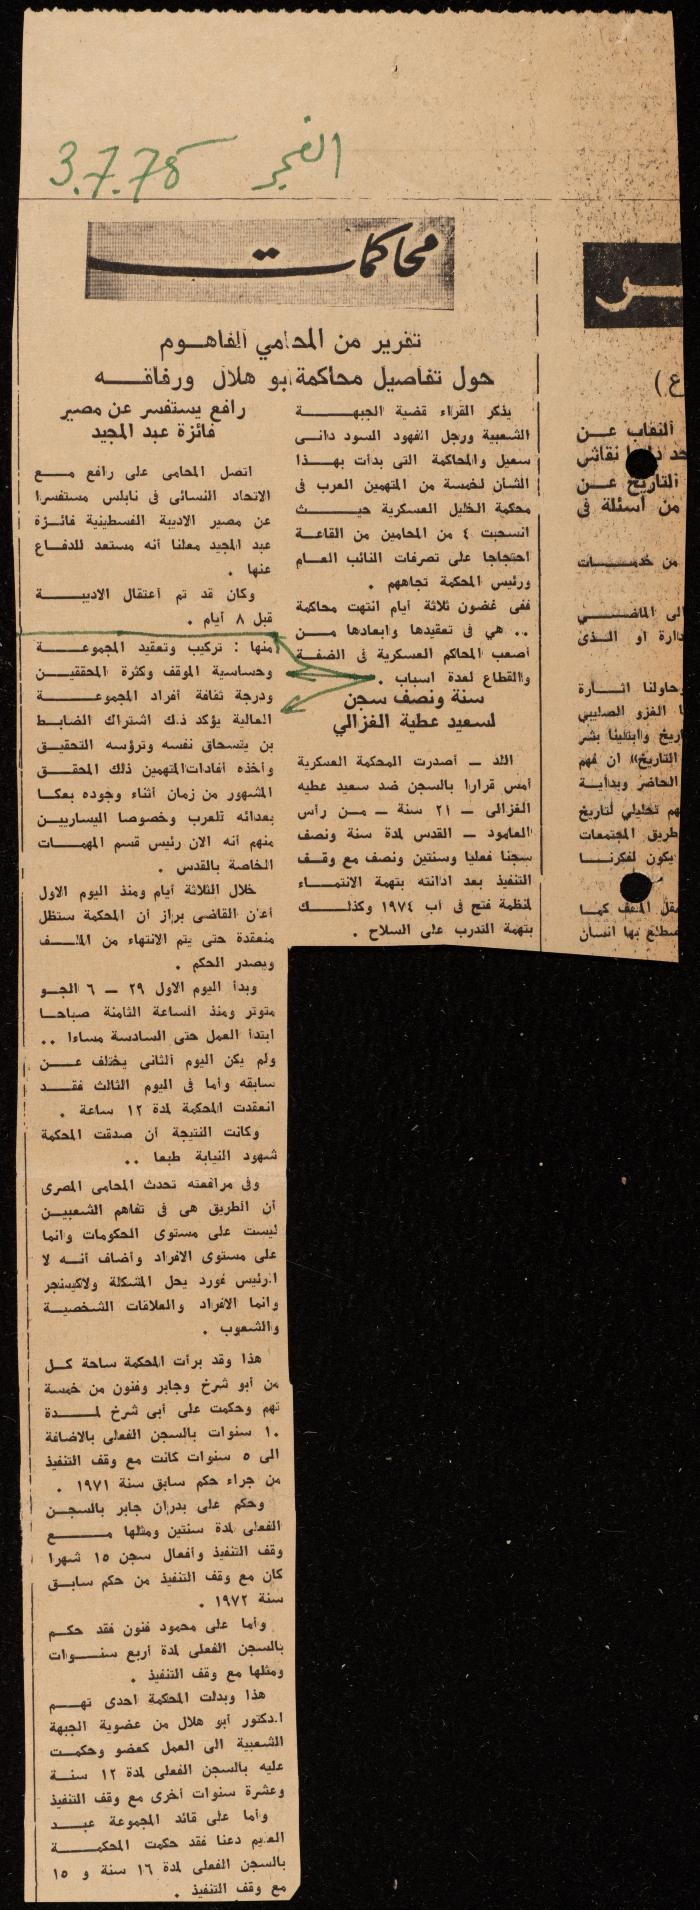 الفجر 3.7.78
محاكمات
تقرير من المحامي الفاهوم
حول تفاصيل محاكمة ابو هلال ورفاقه
يذكر القراء قضية الجبهة
الشعبية ورجل الفهود السود دانى
سعيل والمحاكمة التى بدأت بهذا
الشأن لخمسة من المتهمين العرب فى
محكمة الخليل العسكرية حيث
انسحبت ٤ من المحامين من القاعة
احتجاجا على تصرفات النائب العام
ورئيس المحكمة تجاههم .
ففى غضون ثلاثة أيام انتهت محاكمة
.. هي فى تعقيدها وابعادها من
أصعب المحاكم العسكرية فى الضفة
والقطاع لعدة اسباب .
سنة ونصف سجن
لسعيد عطية الغزالي
اللد — أصدرت المحكمة العسكرية
أمس قرارا بالسجن ضد سعيد عطيه
الغزالى — ٢١ سنة — من رأس
العامود — القدس لمدة سنة ونصف
سجنا فعليا وسنتين ونصف مع وقف
التنفيذ بعد ادانته بتهمة الانتماء
لمنظمة فتح فى آب ١٩٧٤ وكذلك
بتهمة التدرب على السلاح .
رافع يستفسر عن مصير
فائزة عبد المجيد
اتصل المحامى على رافع مع
الاتحاد النسائى فى نابلس مستفسرا
عن مصير الاديبة الفسطينية فائزة
عبد المجيد معلنا أنه مستعد للدفاع
عنها .
وكان قد تم أعتقال الاديبة
قبل ٨ أيام .
منها : تركيب وتعقيد المجموعة
وحساسية الموقف وكثرة المحققين
ودرجة ثقافة أفراد المجموعة
العالية يؤكد ذلك اشتراك الضابط
بن يتسحاق نفسه وترؤسه التحقيق
وأخذه أفادات المتهمين ذلك المحقق
المشهور من زمان أثناء وجوده بعكا
بعدائه للعرب وخصوصا اليساريين
منهم أنه الان رئيس قسم المهمات
الخاصة بالقدس .
خلال الثلاثة أيام ومنذ اليوم الاول
أعلن القاضى براز أن المحكمة ستظل
منعقدة حتى يتم الانتهاء من الملف
ويصدر الحكم .
وبدأ اليوم الاول ٢٩ — ٦ الجو
متوتر ومنذ الساعة الثامنة صباحا
ابتدأ العمل حتى السادسة مساءا ..
ولم يكن اليوم الثانى يختلف عن
سابقه وأما فى اليوم الثالث فقد
انعقدت المحكمة لمدة ١٢ ساعة .
وكانت النتيجة أن صدقت المحكمة
شهود النيابة طبعا ..
وفى مرافعته تحدث المحامى المصرى
أن الطريق هى فى تفاهم الشعبين
ليست على مستوى الحكومات وانما
على مستوى الافراد وأضاف أنه لا
الرئيس فورد يحل المشكلة ولاكيسنجر
وانما الافراد والعلاقات الشخصية
والشعوب .
هذا وقد برأت المحكمة ساحة كل
من أبو شرخ وجابر وفنون من خمسة
تهم وحكمت على أبى شرخ لمدة
١٠ سنوات بالسجن الفعلى بالاضافة
الى ٥ سنوات كانت مع وقف التنفيذ
من جراء حكم سابق سنة ١٩٧١ .
وحكم على بدران جابر بالسجن
الفعلى لمدة سنتين ومثلها مع
وقف التنفيذ وأفعال سجن ١٥ شهرا
كان مع وقف التنفيذ من حكم سابق
سنة ١٩٧٢ .
وأما على محمود فنون فقد حكم
بالسجن الفعلى لمدة أربع سنوات
ومثلها مع وقف التنفيذ .
هذا وبدلت المحكمة احدى تهم
الدكتور أبو هلال من عضوية الجبهة
الشعبية الى العمل كعضو وحكمت
عليه بالسجن الفعلى لمدة ١٢ سنة
وعشرة سنوات أخرى مع وقف التنفيذ
وأما على قائد المجموعة عبد
العليم دعنا فقد حكمت المحكمة
بالسجن الفعلى لمدة ١٦ سنة و ١٥
مع وقف التنفيذ .
ع )
النقاب عن
نقاش
التاريخ عن
من أسئلة فى
من خدمات
الى الماضى
دارة او الذى
وحاولنا اثارة
ا الغزو الصليبي
اريخ وابتلينا بشر
التاريخ» ان فهم
الحاضر وبداية
هم تحليلي لتاريخ
طريق المجتمعات
يكون لفكرنا
كما
بها انسان